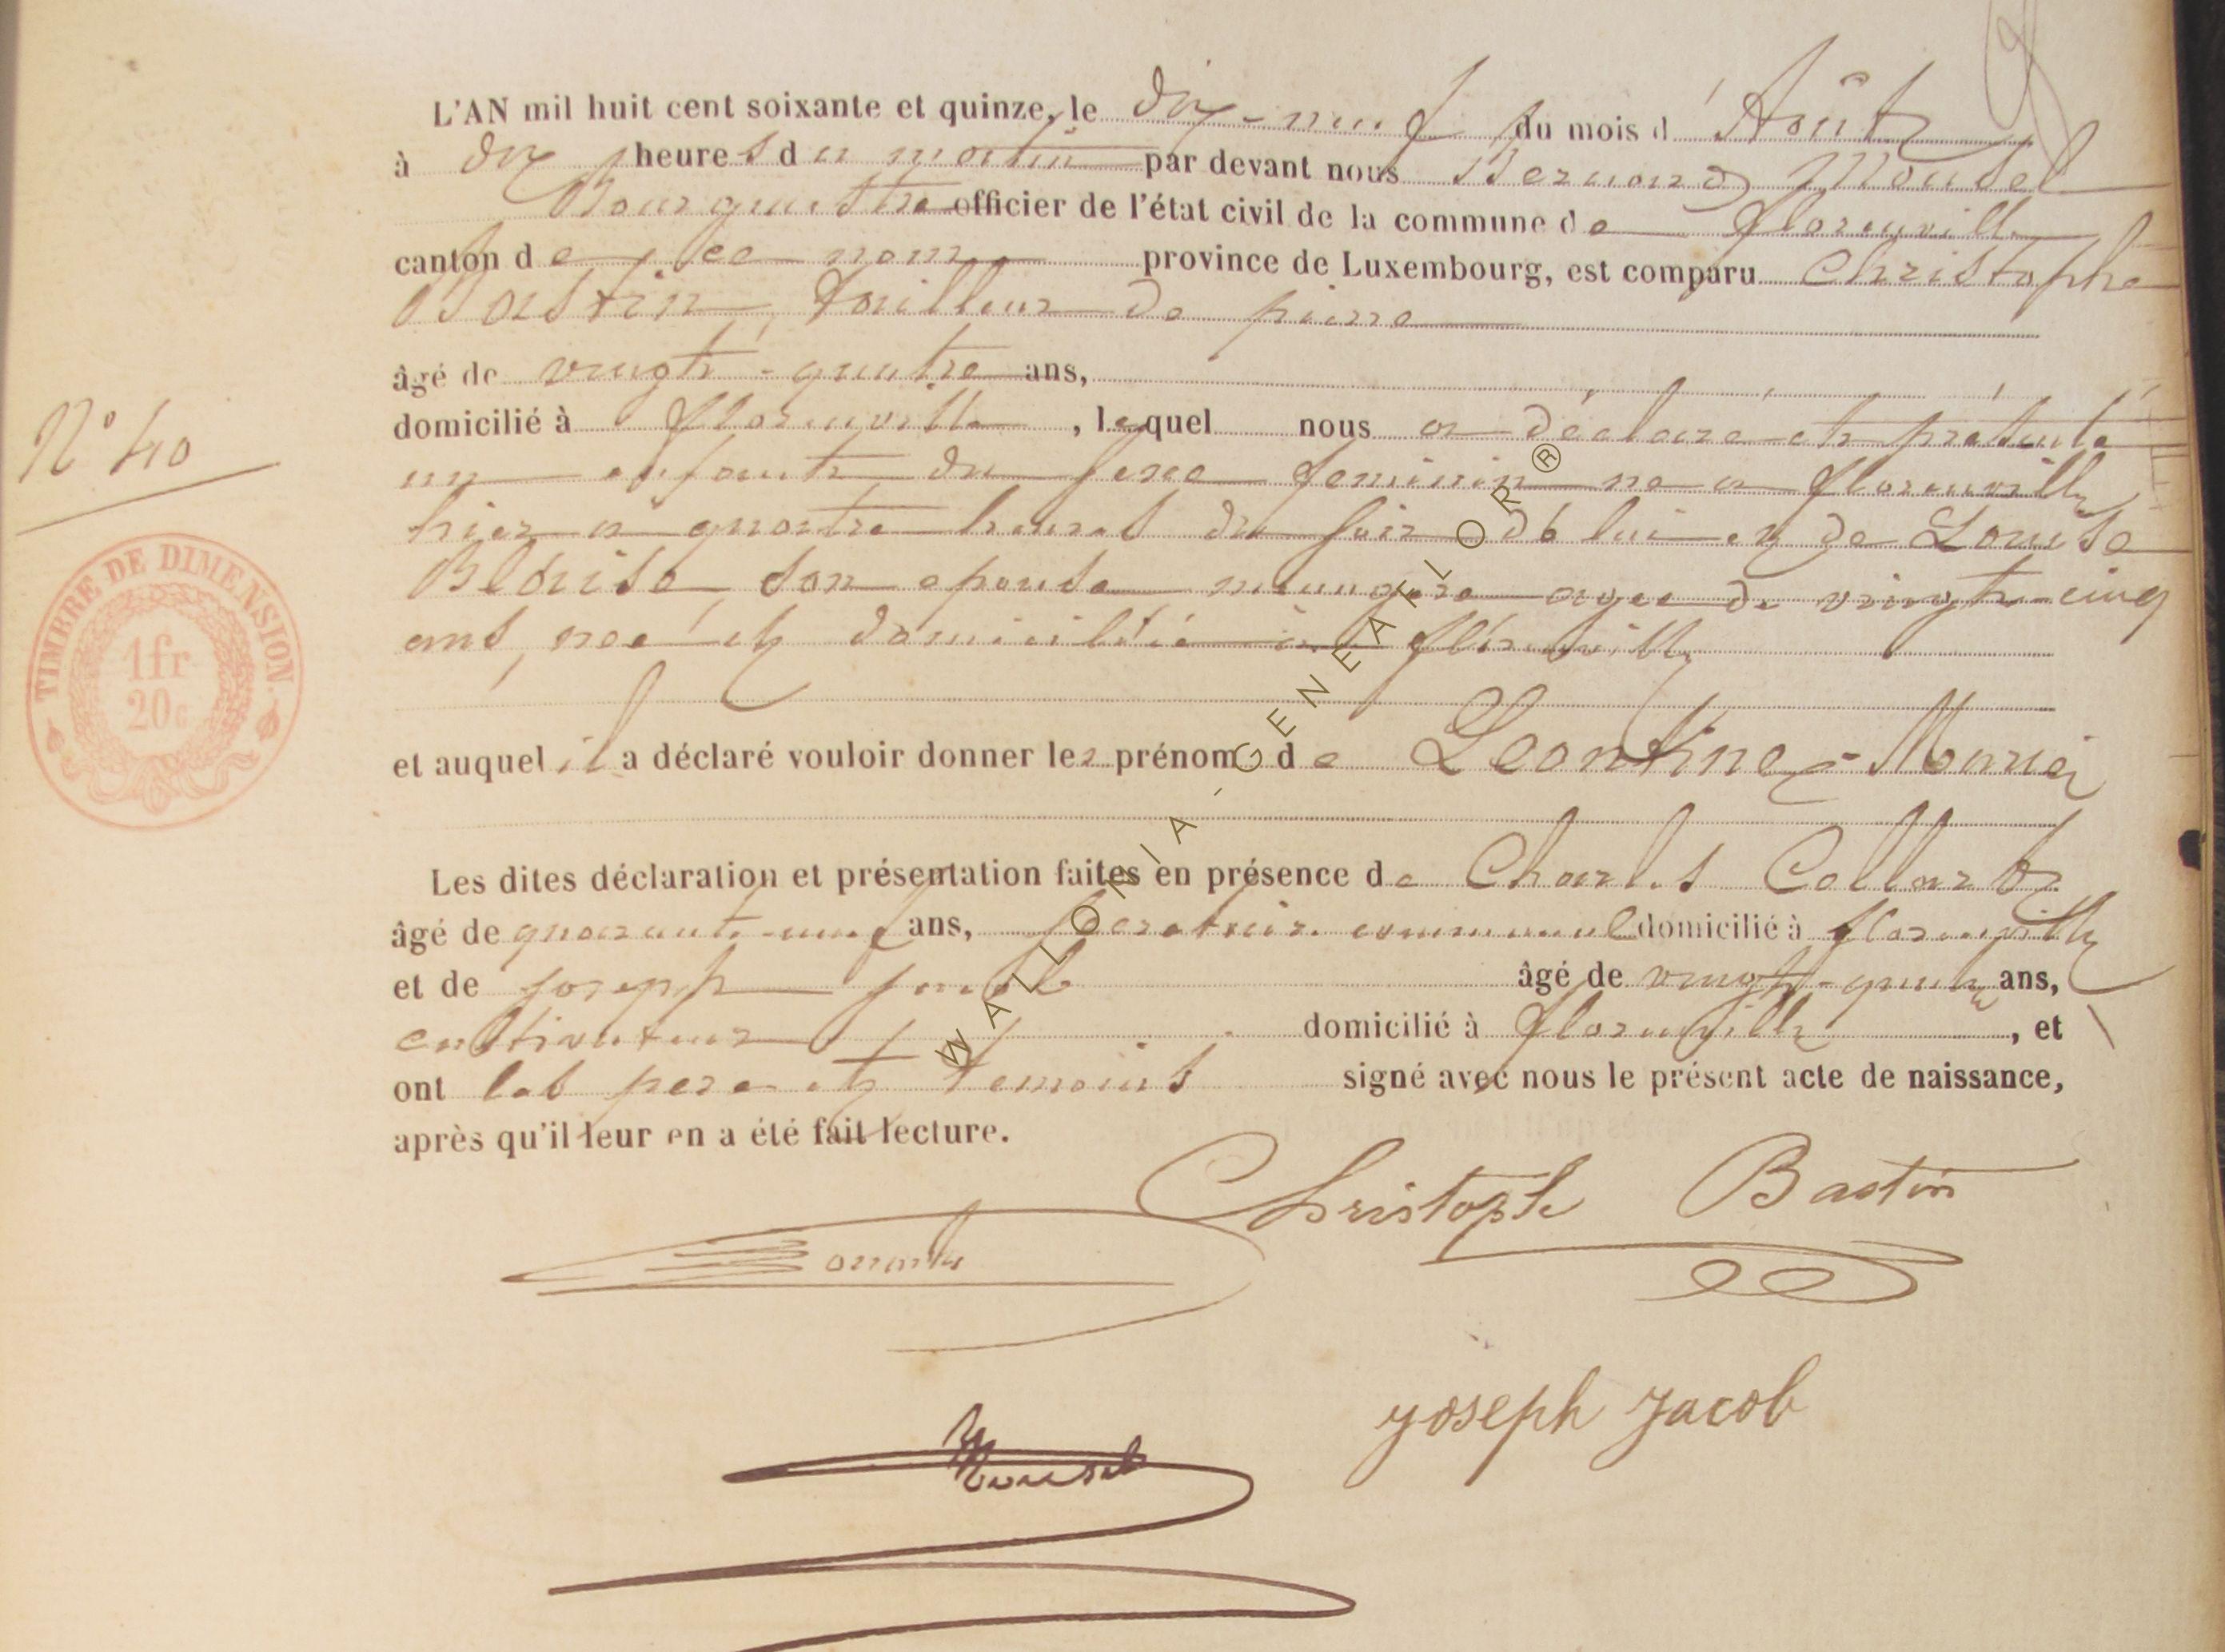 L'AN mil huit cent soixante et quinze, le dix-neuf du mois d'Août
à dix heures du matin par devant nous Bernard Mousel
Bourgmestre officier de l'état civil de la commune de Florenville
canton de ce nom province de Luxembourg, est comparu Christophe
Bastin, tailleur de pierre
âgé de vingt-quatre ans,
domicilié à Florenville, lequel nous a déclaré et présenté
un enfant du sexe feminin né a florenville
hier a quatre heures du soir de lui et de Louise
Blaise, son epouse menagere agee de vingt-cinq
ans, née et domiciliée à florenville
N° 40
TIMBRE DE DIMENSION.
1 fr
20 c
et auquel il a déclaré vouloir donner les prénom de Leontine-Maria
Les dites déclaration et présentation faites en présence de Charles Collart
âgé de quarante-neuf ans, secretaire communal domicilié à florenville
et de joseph jacob âgé de vingt- ans,
cultivateur domicilié à florenville, et
ont les pere et temoins signé avec nous le présent acte de naissance,
après qu'il leur en a été fait lecture.
Christophe Bastin
Joseph Jacob
Mousel
WALLONIA-GENEAFLOR®